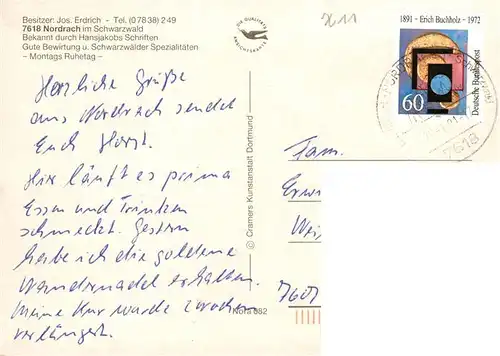 Besitzer: Jos. Erdrich - Tel. (0 78 38) 2 49
7618 Nordrach im Schwarzwald
Bekannt durch Hansjakobs Schriften
Gute Bewirtung u. Schwarzwälder Spezialitäten
– Montags Ruhetag –
Herzliche Grüße
aus Nordrach sendet
Euch Horst.
Hier läuft es prima
Essen und Trinken
schmeckt. Gestern
habe ich die goldene
Wandernadel erhalten.
Meine Kur wurde 2 Wochen
verlängert.
© Cramers Kunstanstalt Dortmund
Nora 682
DIE QUALITÄTS
ANSICHTSKARTE
1891 - Erich Buchholz - 1972
60
Deutsche Bundespost
7618
Fam.
Erwi
7607